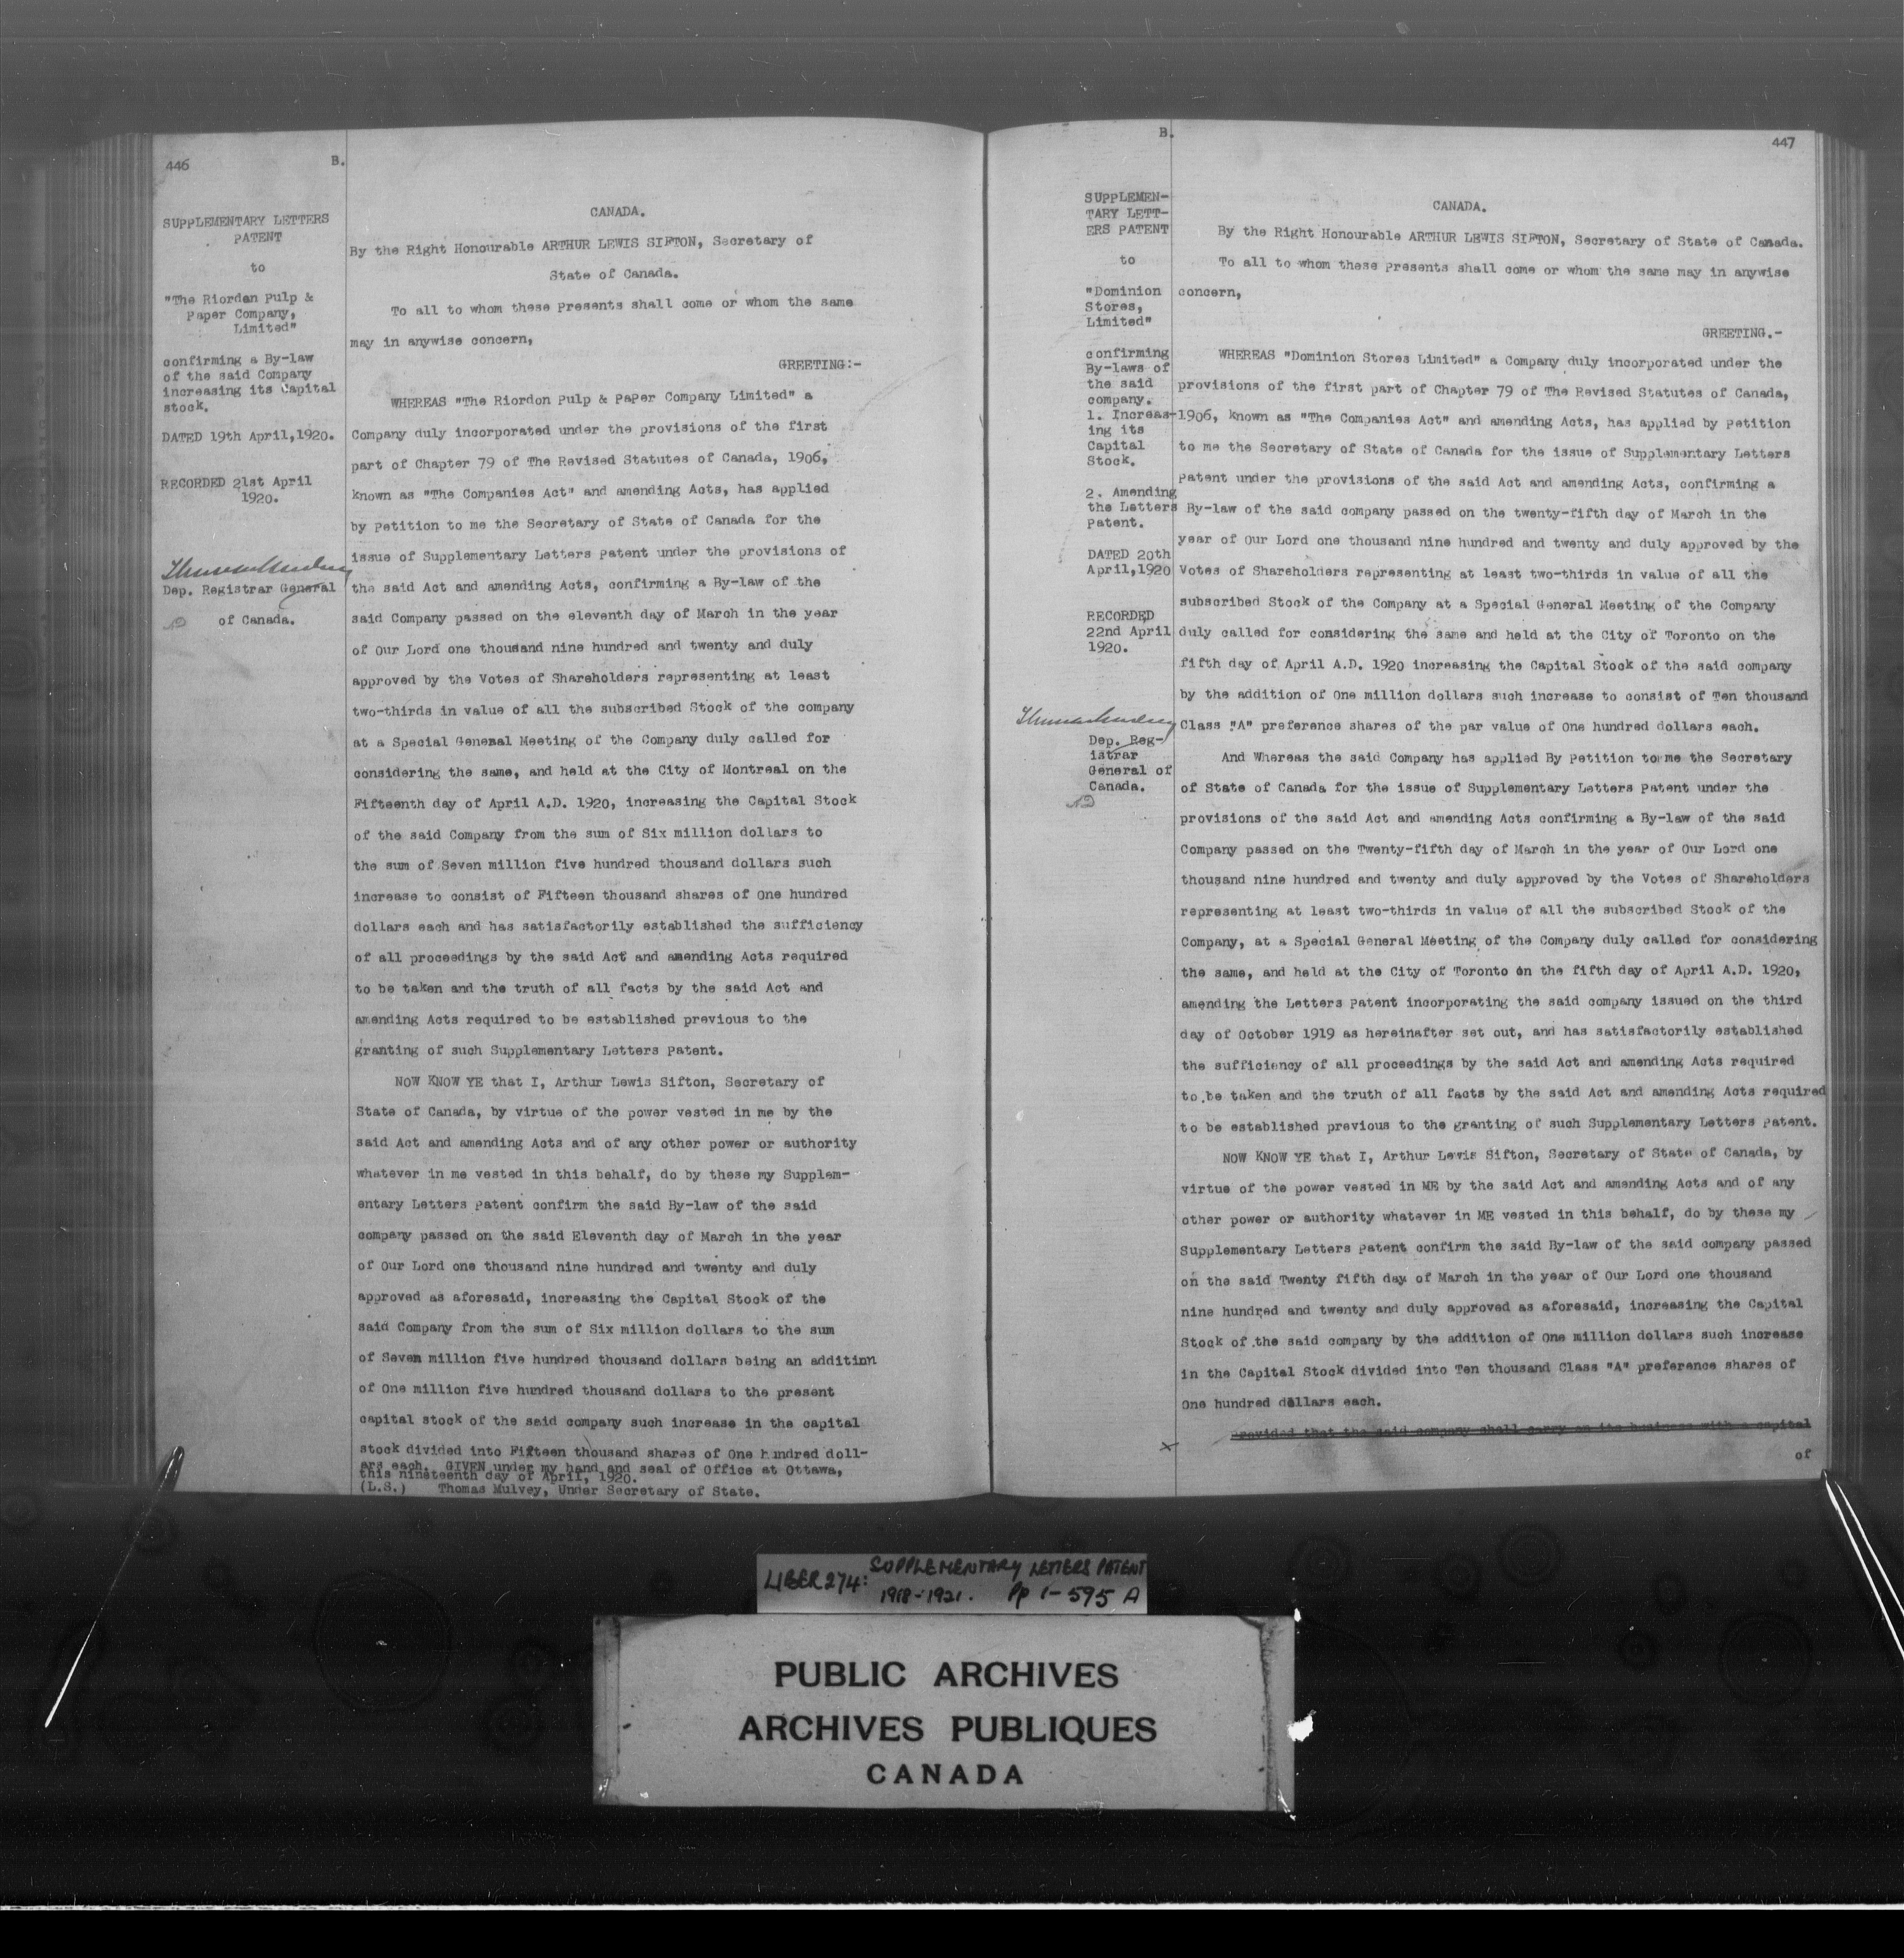 446
B.
SUPPLEMENTARY LETTERS
PATENT
to
"The Riordan Pulp &
Paper Company,
Limited"
confirming a By-law
of the said Company
increasing its Capital
stock.
DATED 19th April,1920.
RECORDED 21st April
1920.
Dep. Registrar General
of Canada.
CANADA.
By the Right Honourable ARTHUR LEWIS SIFTON, Secretary of
State of Canada.
To all to whom these Presents shall come or whom the same
may in anywise concern,
GREETING:-
WHEREAS "The Riordon Pulp & Paper Company Limited" a
Company duly incorporated under the provisions of the first
part of Chapter 79 of The Revised Statutes of Canada, 1906,
known as "The Companies Act" and amending Acts, has applied
by Petition to me the Secretary of State of Canada for the
issue of Supplementary Letters Patent under the provisions of
the said Act and amending Acts, confirming a By-law of the
said Company passed on the eleventh day of March in the year
of Our Lord one thousand nine hundred and twenty and duly
approved by the Votes of Shareholders representing at least
two-thirds in value of all the subscribed Stock of the company
at a Special General Meeting of the Company duly called for
considering the same, and held at the City of Montreal on the
Fifteenth day of April A.D. 1920, increasing the Capital Stock
of the said Company from the sum of Six million dollars to
the sum of Seven million five hundred thousand dollars such
increase to consist of Fifteen thousand shares of One hundred
dollars each and has satisfactorily established the sufficiency
of all proceedings by the said Act and amending Acts required
to be taken and the truth of all facts by the said Act and
amending Acts required to be established previous to the
granting of such Supplementary Letters Patent.
NOW KNOW YE that I, Arthur Lewis Sifton, Secretary of
State of Canada, by virtue of the power vested in me by the
said Act and amending Acts and of any other power or authority
whatever in me vested in this behalf, do by these my Supplem-
entary Letters Patent confirm the said By-law of the said
company passed on the said Eleventh day of March in the year
of Our Lord one thousand nine hundred and twenty and duly
approved as aforesaid, increasing the Capital Stock of the
said Company from the sum of Six million dollars to the sum
of Seven million five hundred thousand dollars being an additinn
of One million five hundred thousand dollars to the present
capital stock of the said company such increase in the capital
stock divided into Fifteen thousand shares of One hundred doll-
ars each. GIVEN under my hand and seal of Office at Ottawa,
this nineteenth day of April, 1920.
(L.S.) Thomas Mulvey, Under Secretary of State.
B.
447
SUPPLEMEN-
TARY LETT-
ERS PATENT
to
"Dominion
Stores,
Limited"
confirming
By-laws of
the said
company.
1. Increas-
ing its
Capital
Stock.
2. Amending
the Letters
Patent.
DATED 20th
April,1920
RECORDED
22nd April
1920.
Dep. Reg-
istrar
General of
Canada.
CANADA.
By the Right Honourable ARTHUR LEWIS SIFTON, Secretary of State of Canada.
To all to whom these Presents shall come or whom the same may in anywise
concern,
GREETING.-
WHEREAS "Dominion Stores Limited" a Company duly incorporated under the
provisions of the first part of Chapter 79 of The Revised Statutes of Canada,
1906, known as "The Companies Act" and amending Acts, has applied by Petition
to me the Secretary of State of Canada for the issue of Supplementary Letters
Patent under the provisions of the said Act and amending Acts, confirming a
By-law of the said company passed on the twenty-fifth day of March in the
year of Our Lord one thousand nine hundred and twenty and duly approved by the
Votes of Shareholders representing at least two-thirds in value of all the
subscribed Stock of the Company at a Special General Meeting of the Company
duly called for considering the same and held at the City of Toronto on the
fifth day of April A.D. 1920 increasing the Capital Stock of the said company
by the addition of One million dollars such increase to consist of Ten thousand
Class "A" preference shares of the par value of One hundred dollars each.
And Whereas the said Company has applied By Petition to me the Secretary
of State of Canada for the issue of Supplementary Letters Patent under the
provisions of the said Act and amending Acts confirming a By-law of the said
Company passed on the Twenty-fifth day of March in the year of Our Lord one
thousand nine hundred and twenty and duly approved by the Votes of Shareholders
representing at least two-thirds in value of all the subscribed Stock of the
Company, at a Special General Meeting of the Company duly called for considering
the same, and held at the City of Toronto on the fifth day of April A.D. 1920,
amending the Letters Patent incorporating the said company issued on the third
day of October 1919 as hereinafter set out, and has satisfactorily established
the sufficiency of all proceedings by the said Act and amending Acts required
to be taken and the truth of all facts by the said Act and amending Acts required
to be established previous to the granting of such Supplementary Letters Patent.
NOW KNOW YE that I, Arthur Lewis Sifton, Secretary of State of Canada, by
virtue of the power vested in ME by the said Act and amending Acts and of any
other power or authority whatever in ME vested in this behalf, do by these my
Supplementary Letters Patent confirm the said By-law of the said company passed
on the said Twenty fifth day of March in the year of Our Lord one thousand
nine hundred and twenty and duly approved as aforesaid, increasing the Capital
Stock of the said company by the addition of One million dollars such increase
in the Capital Stock divided into Ten thousand Class "A" preference shares of
One hundred dollars each.
provided that the said company shall carry on its business with a capital
of
LIBER 274: SUPPLEMENTARY LETTERS PATENT
1918-1921. Pp 1-595 A
PUBLIC ARCHIVES
ARCHIVES PUBLIQUES
CANADA